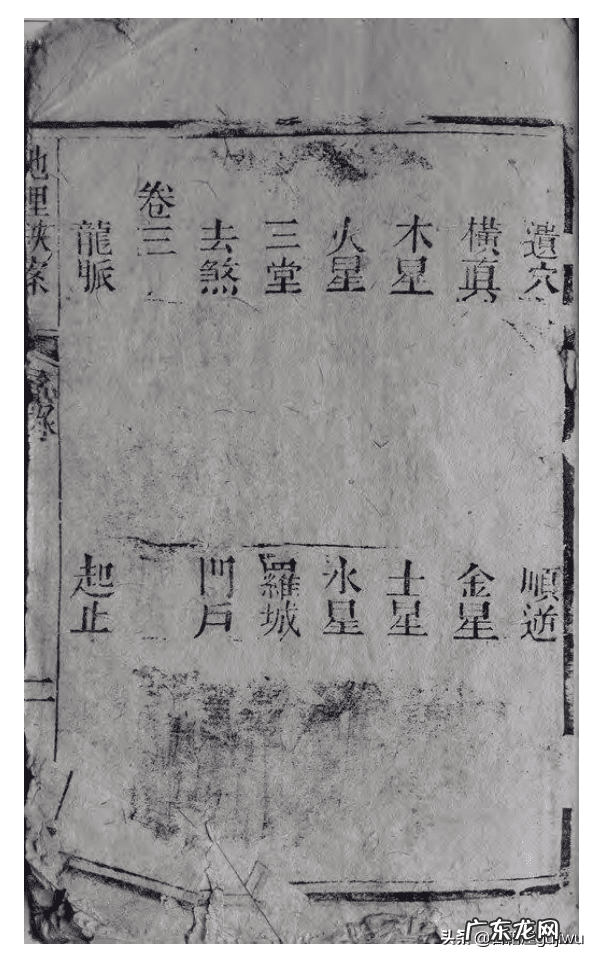 遺穴 順逆
橫直 金星
木星 土星
火星 水星
三堂 羅城
去煞 門戶
卷三
龍脈 起止
地理鐵案 目錄 二
头条
广东龙网